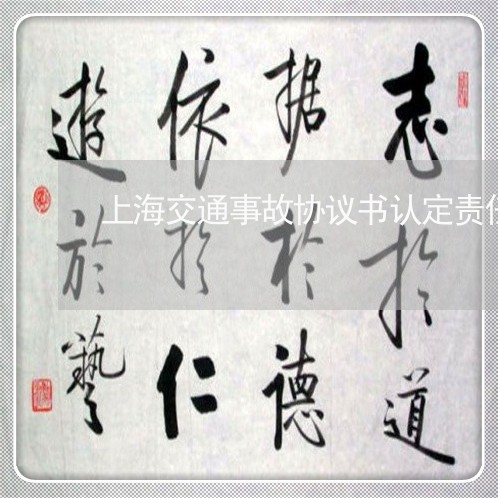 志於道
据於德
依於仁
遊於藝
上海交通事故协议书认定责